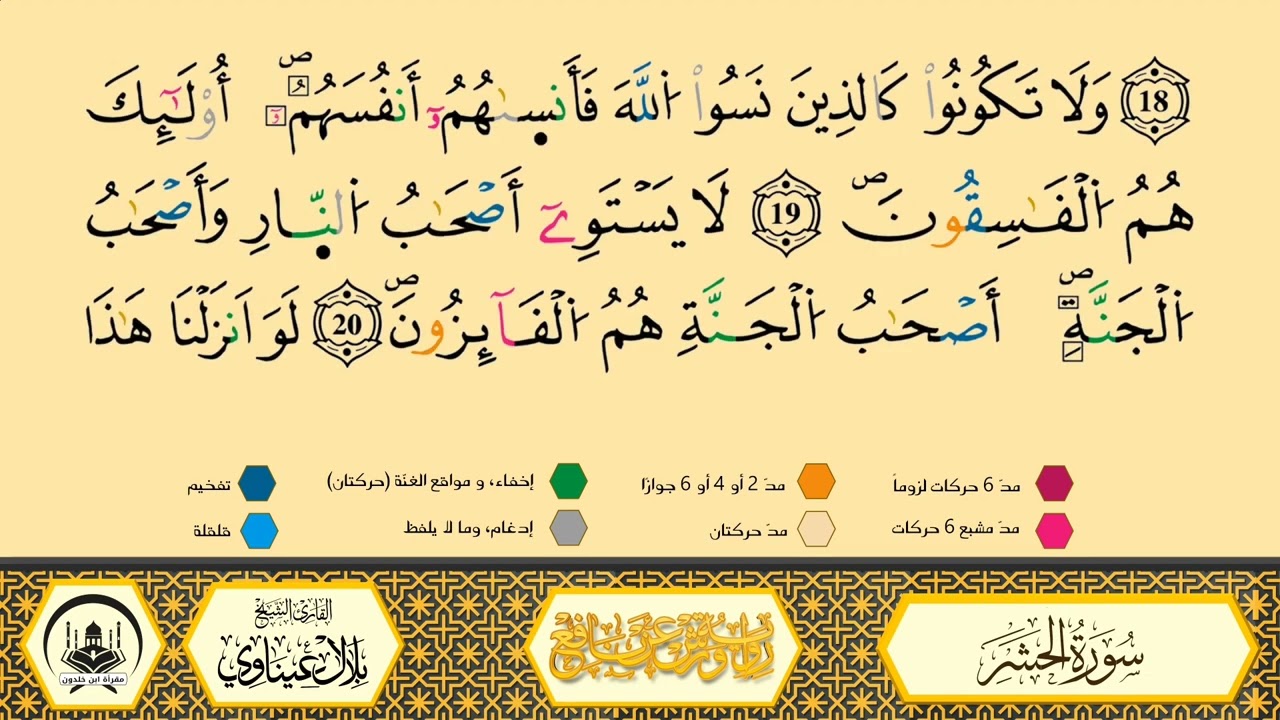 18 وَلَا تَكُونُواْ كَالذِينَ نَسُواْ اُللَّهَ فَأَنس۪ىٰهُمُۥٓ أَنفُسَهُمُۥٓۖ أُوْلَٰٓئِكَ
هُمُ اُلْفَٰسِقُونَۖ 19 لَا يَسْتَوِےٓ أَصْحَٰبُ اُلنّ۪ارِ وَأَصْحَٰبُ
اُلْجَنَّةِۖ أَصْحَٰبُ اُلْجَنَّةِ هُمُ اُلْفَآئِزُونَۖ 20 لَوَ اَنزَلْنَا هَٰذَا
مدّ 6 حركات لزوماً مدّ 2 أو 4 أو 6 جوازًا إخفاء، و مواقع الغنّة (حركتان) تفخيم
مدّ مشبع 6 حركات مدّ حركتان إدغام، وما لا يلفظ قلقلة
سُورَةُ الحَشْرِ
رواية ورش عن نافع
القارئ الشيخ
بلال عيناوي
مقرأة ابن خلدون